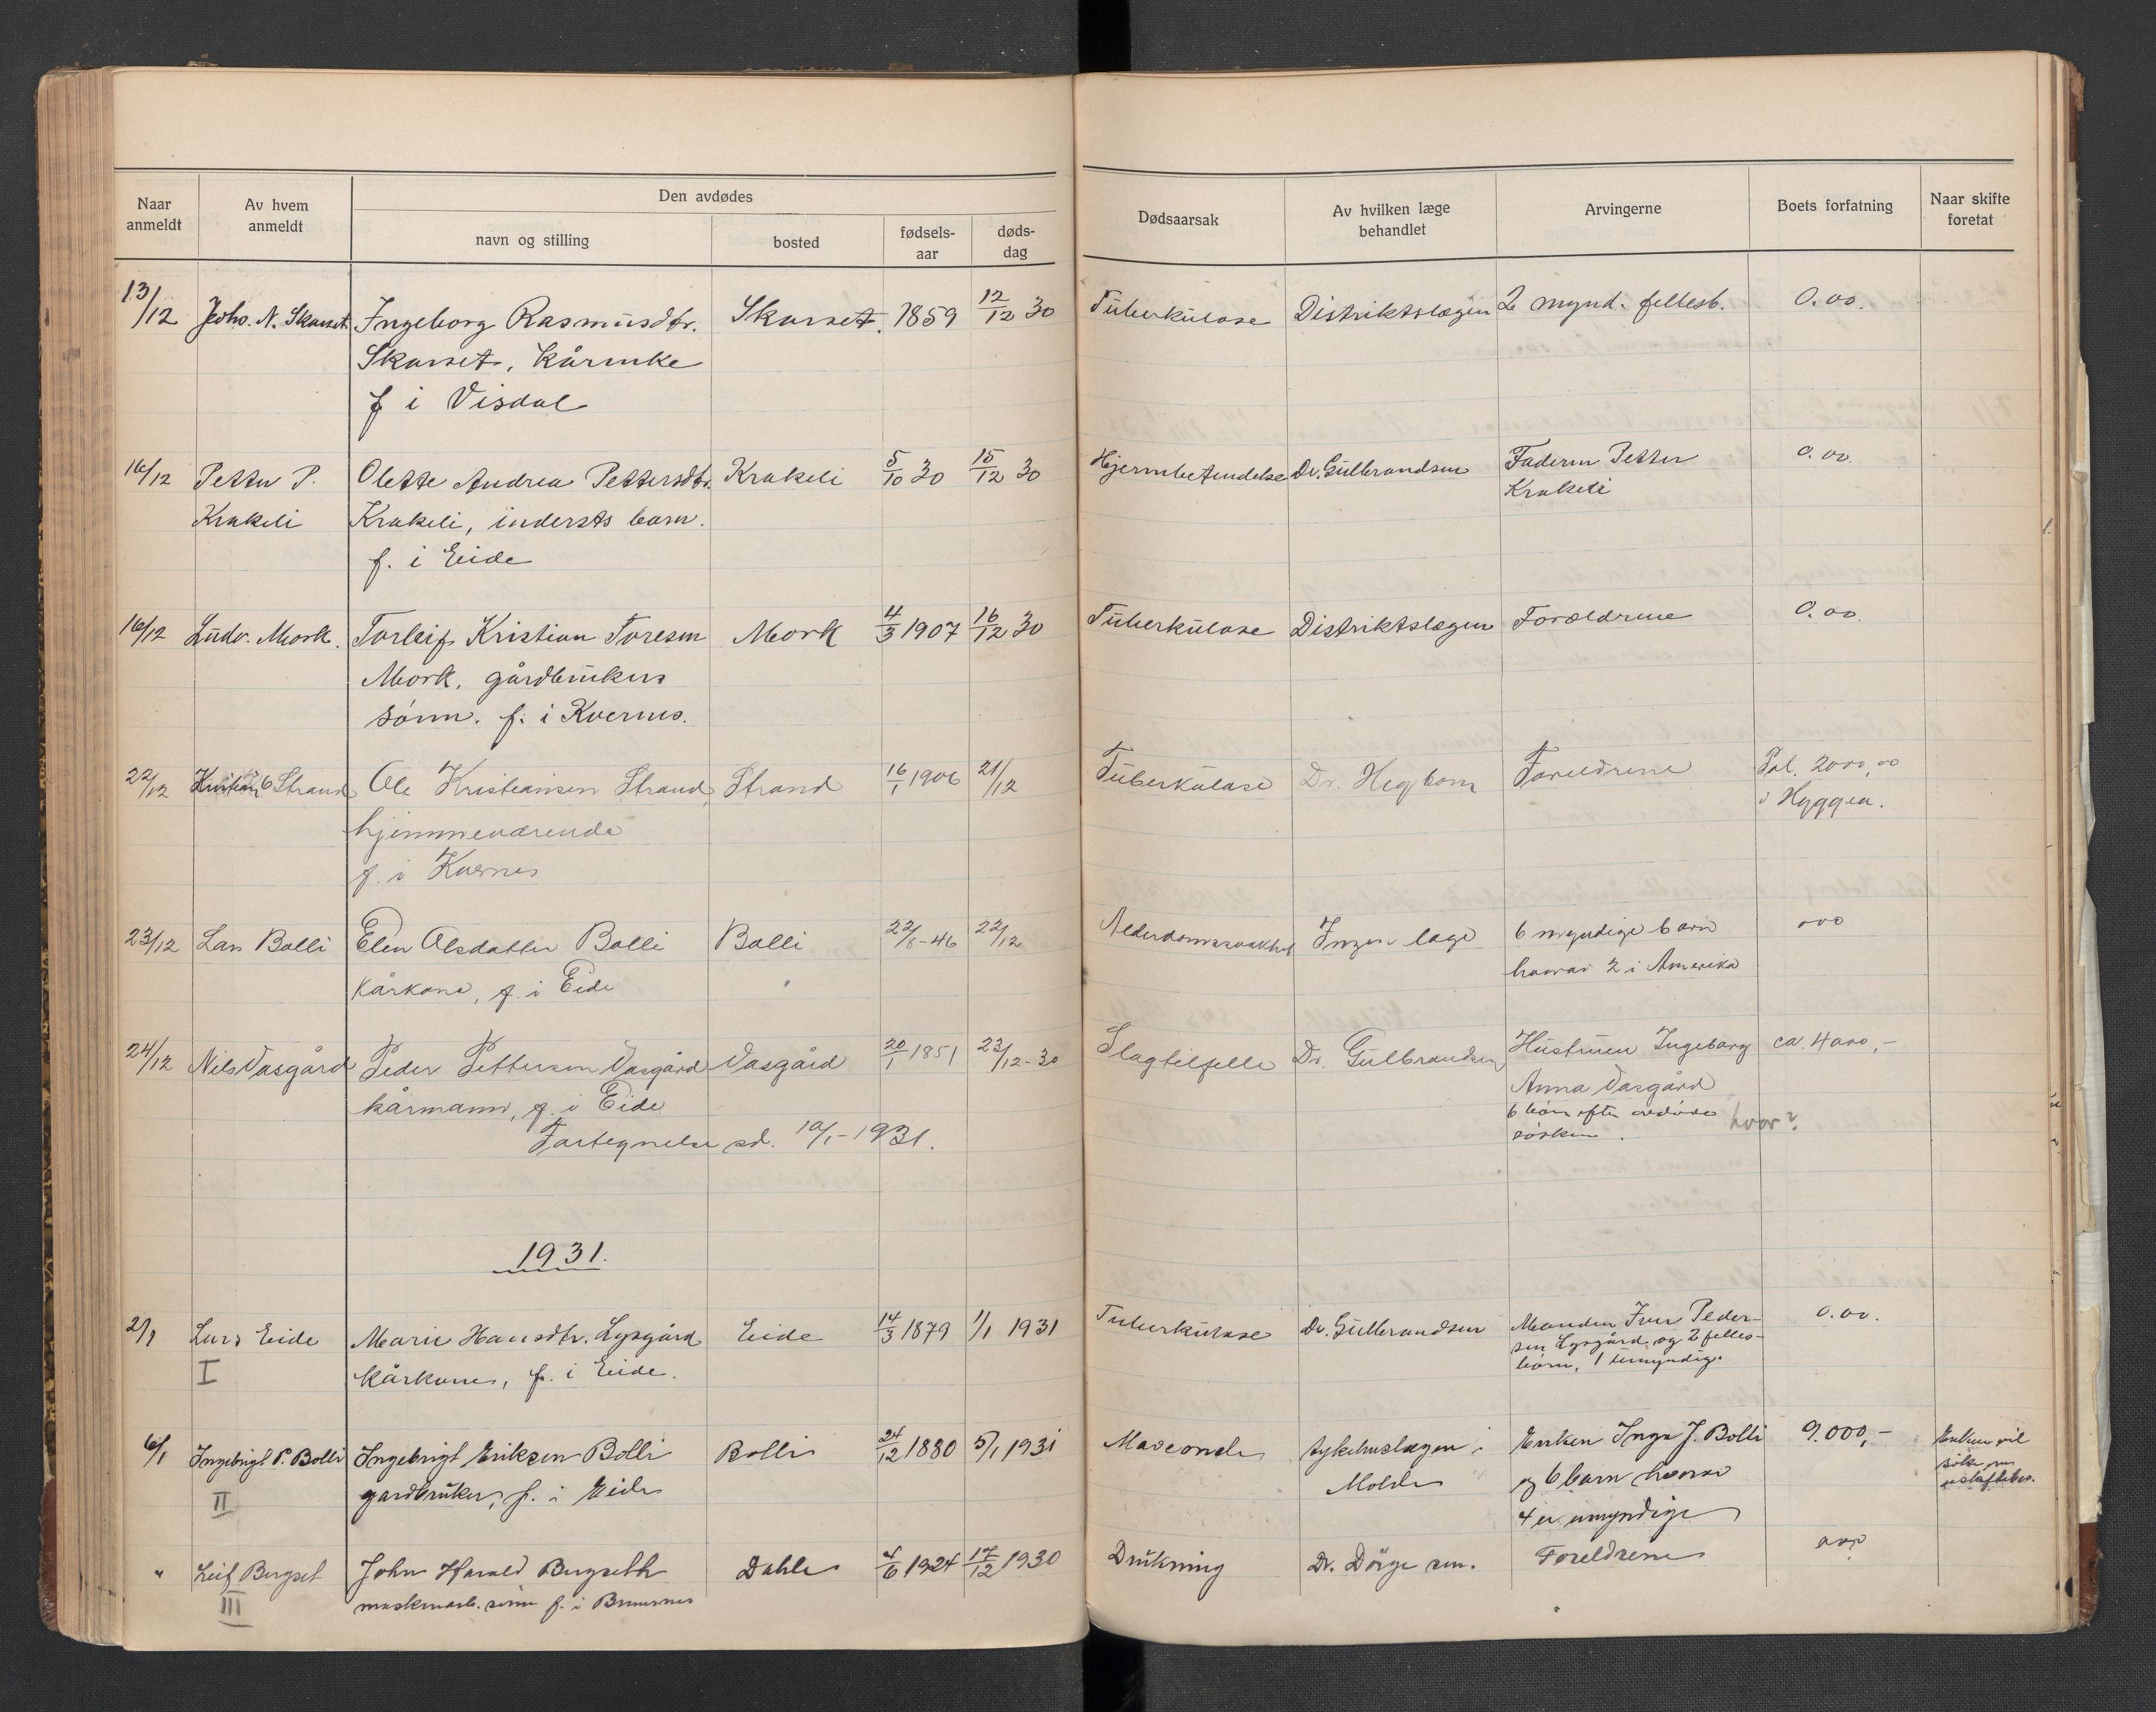 Naar anmeldt
Av hvem anmeldt
Den avdødes
navn og stilling
bosted
fødsels-aar
døds-dag
Dødsaarsak
Av hvilken læge behandlet
Arvingerne
Boets forfatning
Naar skifte foretat
13/12 Johs. N. Skarset Ingeborg Rasmusdtr. Skarset. 1859 12/12 30 Tuberkulose Distriktslægen 2 mynd. fellesb. 0.00.
Skarset, kårenke
f i Visdal
16/12 Petter P. Olette Andrea Pettersdtr. Krakeli 5/10 30 15/12 30 Hjernebetendelse Dr. Gulbrandsen Faderen Petter 0.00.
Krakeli Krakeli, indersts barn. Krakeli
f. i Eide
16/12 Ludv. Mork. Torleif Kristian Toresen Mork 4/3 1907 16/12 30 Tuberkulose Distriktslægen Forældrene 0.00.
Mork, gårdbrukers
sönn. f. i Kvernes.
22/12 Kristian O Strand Ole Kristiansen Strand, Strand 16/1 1906 21/12 Tuberkulose Dr. Hegbom Foreldrene Pol. 2000,00
hjemmeværende i Hyggea.
f. i Kvernes
23/12 Lars Bolli Elen Olsdatter Bolli Bolli 22/8-46 22/12 Alderdomssvakhet Ingen læge 6 myndige barn 000
kårkone, f. i Eide hvorav 2 i Amerika
24/12 Nils Vasgård Peder Pettersen Vasgård Vasgård 20/1 1851 23/12-30 Slagtilfelle Dr. Gulbrandsen Hustruen Ingeborg ca. 4000,-
kårmann, f. i Eide Anna Vasgård
6 börn efter avdöde hvor?
Fortegnelse sd. 10/1-1931. sösken.
1931.
2/1 Lars Eide Marie Hansdtr. Lysgård Eide 14/3 1879 1/1 1931 Tuberkulose Dr. Gulbrandsen Manden Iver Peder- 0.00.
sen Lysgård og 2 felles-
I kårkone, f. i Eide. börn, 1 umyndig.
6/1 Ingebrigt P. Bolli Ingebrigt Eriksen Bolli Bolli 24/12 1880 5/1 1931 Maveonde sykehuslægen i Enken Inga J. Bolli 9.000,- Enken vil
II gardbruker, f. i Eide Molde og 6 barn hvorav söke om
4 er umyndige uskiftebo.
" Leif Bergset John Harald Bergseth Dahle 4/6 1924 17/12 1930 Drukning Dr. Dörge sen. Foreldrene 000
III maskinarb. sönn f. i Bremsnes